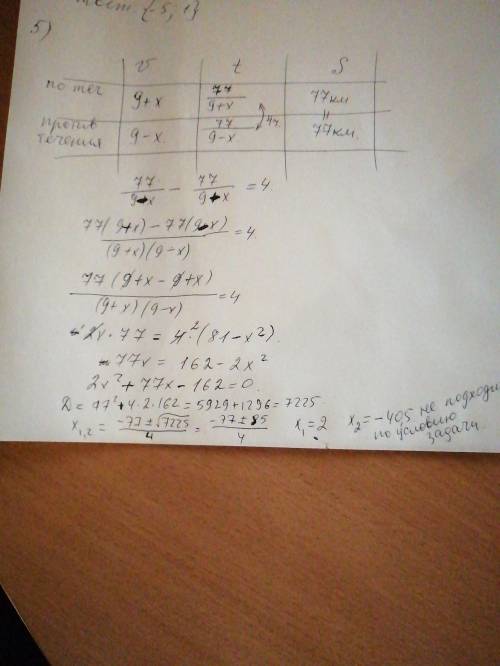 {-5; 1}
5)
v t S
по теч 9+x 77/(9+x) 77км
против течения 9-x 77/(9-x) 4ч. 77км.
77/(9-x) - 77/(9+x) = 4.
(77(9+x) - 77(9-x))/((9+x)(9-x)) = 4.
(77(9+x-9+x))/((9+x)(9-x)) = 4
2x·77 = 4·(81-x²).
77x = 162-2x²
2x²+77x-162=0.
D = 77²+4·2·162 = 5929+1296=7225
x₁,₂ = (-77±√7225)/4 = (-77±85)/4 x₁=2 x₂=-40,5 не подходи
по условию
задачи.